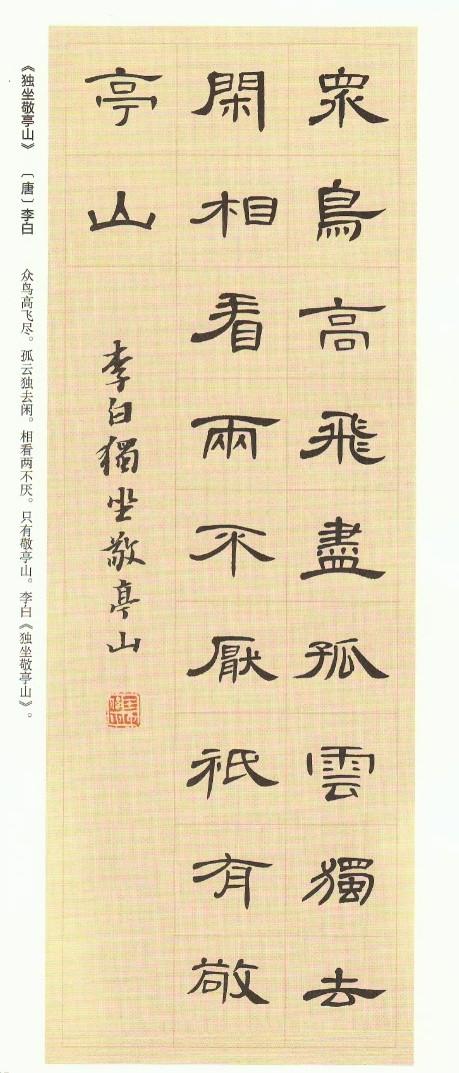 眾鳥高飛盡孤雲獨去
閑相看兩不厭祇有敬
亭山
李白獨坐敬亭山
《独坐敬亭山》 〔唐〕李白 众鸟高飞尽。孤云独去闲。相看两不厌。只有敬亭山。李白《独坐敬亭山》。